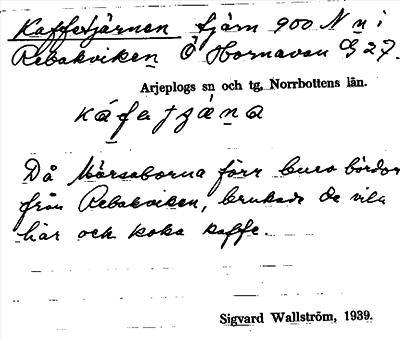 Kaffetjärnen tjärn 900 N n i
Rebakviken Ö Hornavan G 27.
Arjeplogs sn och tg, Norrbottens län.
Då Mörsaborna förr buro bördor
från Rebakviken, brukade de vila
här och koka kaffe.
Sigvard Wallström, 1939.